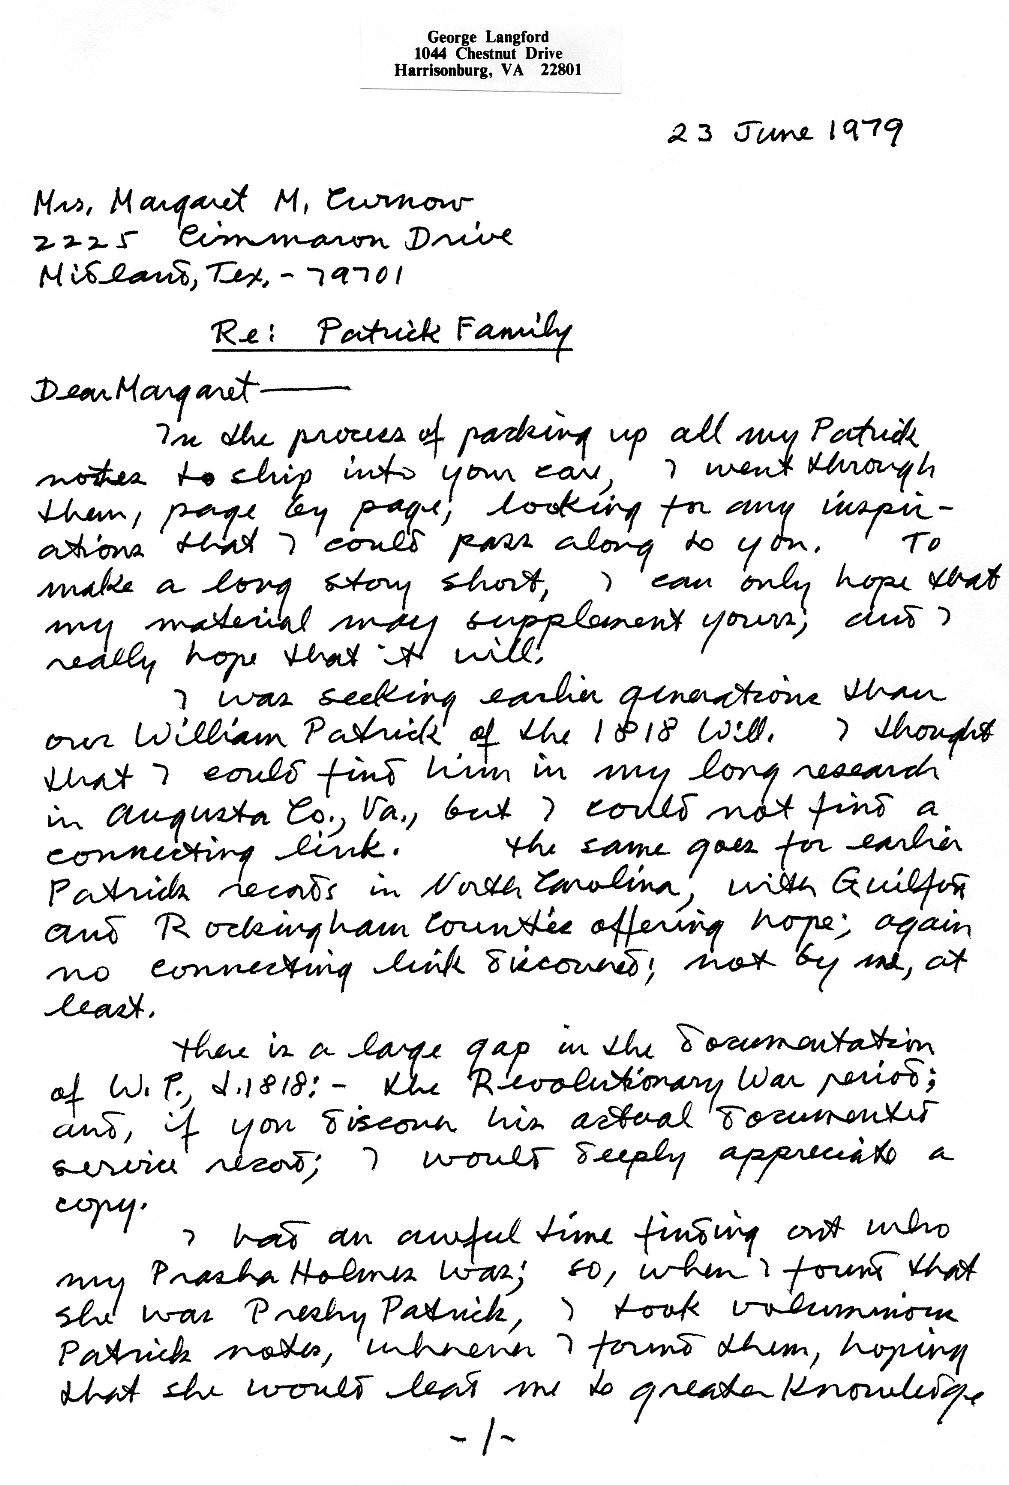 George Langford
1044 Chestnut Drive
Harrisonburg, VA 22801
23 June 1979
Mrs. Margaret M. Curnow
2225 Cimmaron Drive
Midland, Tex. - 79701
Re: Patrick Family
Dear Margaret——
In the process of packing up all my Patrick
notes to ship into your care, I went through
them, page by page, looking for any inspir-
ations that I could pass along to you. To
make a long story short, I can only hope that
my material may supplement yours; and I
really hope that it will.
I was seeking earlier generations than
our William Patrick of the 1818 Will. I thought
that I could find him in my long research
in Augusta Co., Va., but I could not find a
connecting link. The same goes for earlier
Patrick records in North Carolina, with Guilford
and Rockingham Counties offering hope; again
no connecting link discovered; not by me, at
least.
There is a large gap in the documentation
of W. P., d. 1818:- the Revolutionary War period;
and, if you discover his actual documented
service record; I would deeply appreciate a
copy.
I had an awful time finding out who
my Prasha Holmes was; so, when I found that
she was Preshy Patrick, I took voluminous
Patrick notes, whenever I found them, hoping
that she would lead me to greater knowledge
-1-